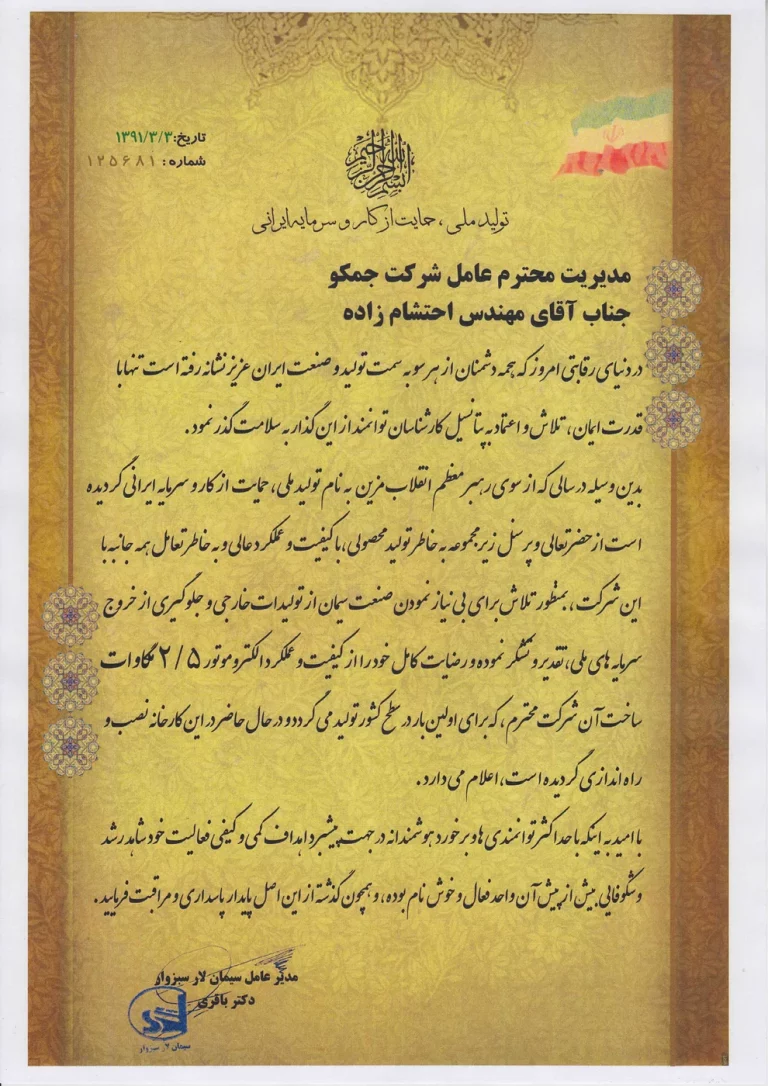 تاریخ: ۱۳۹۱/۳/۳
شماره : ۱۲۵۶۸۱
بسم الله الرحمن الرحیم
تولید ملی ، حمایت از کار و سرمایه ایرانی
مدیریت محترم عامل شرکت جمکو
جناب آقای مهندس احتشام زاده
در دنیای رقابتی امروز که همه دشمنان از هر سو به سمت تولید و صنعت ایران عزیز نشانه رفته است تنها با
قدرت ایمان ، تلاش و اعتماد به پتانسیل کارشناسان توانمند از این گذار به سلامت گذر نمود .
بدین وسیله در سالی که از سوی رهبر معظم انقلاب مزین به نام تولید ملی ، حمایت از کار و سرمایه ایرانی گردیده
است از حضرتعالی و پرسنل زیر مجموعه به خاطر تولید محصولی ، با کیفیت و عملکرد عالی و به خاطر تعامل همه جانبه با
این شرکت ، بمنظور تلاش برای بی نیاز نمودن صنعت سیمان از تولیدات خارجی و جلوگیری از خروج
سرمایه های ملی ، تقدیر و تشکر نموده و رضایت کامل خود را از کیفیت و عملکرد الکتروموتور ۲/۵ مگاوات
ساخت آن شرکت محترم ، که برای اولین بار در سطح کشور تولید می گردد و در حال حاضر در این کارخانه نصب و
راه اندازی گردیده است ، اعلام می دارد .
با امید به اینکه با حداکثر توانمندی ها و برخورد هوشمندانه در جهت پیشبرد اهداف کمی و کیفی فعالیت خود شاهد رشد
و شکوفایی بیش از پیش آن واحد فعال و خوش نام بوده ، و همچون گذشته از این اصل پایدار پاسداری و مراقبت فرمایید .
مدیر عامل سیمان لار سبزوار
دکتر باقری
سیمان لار سبزوار